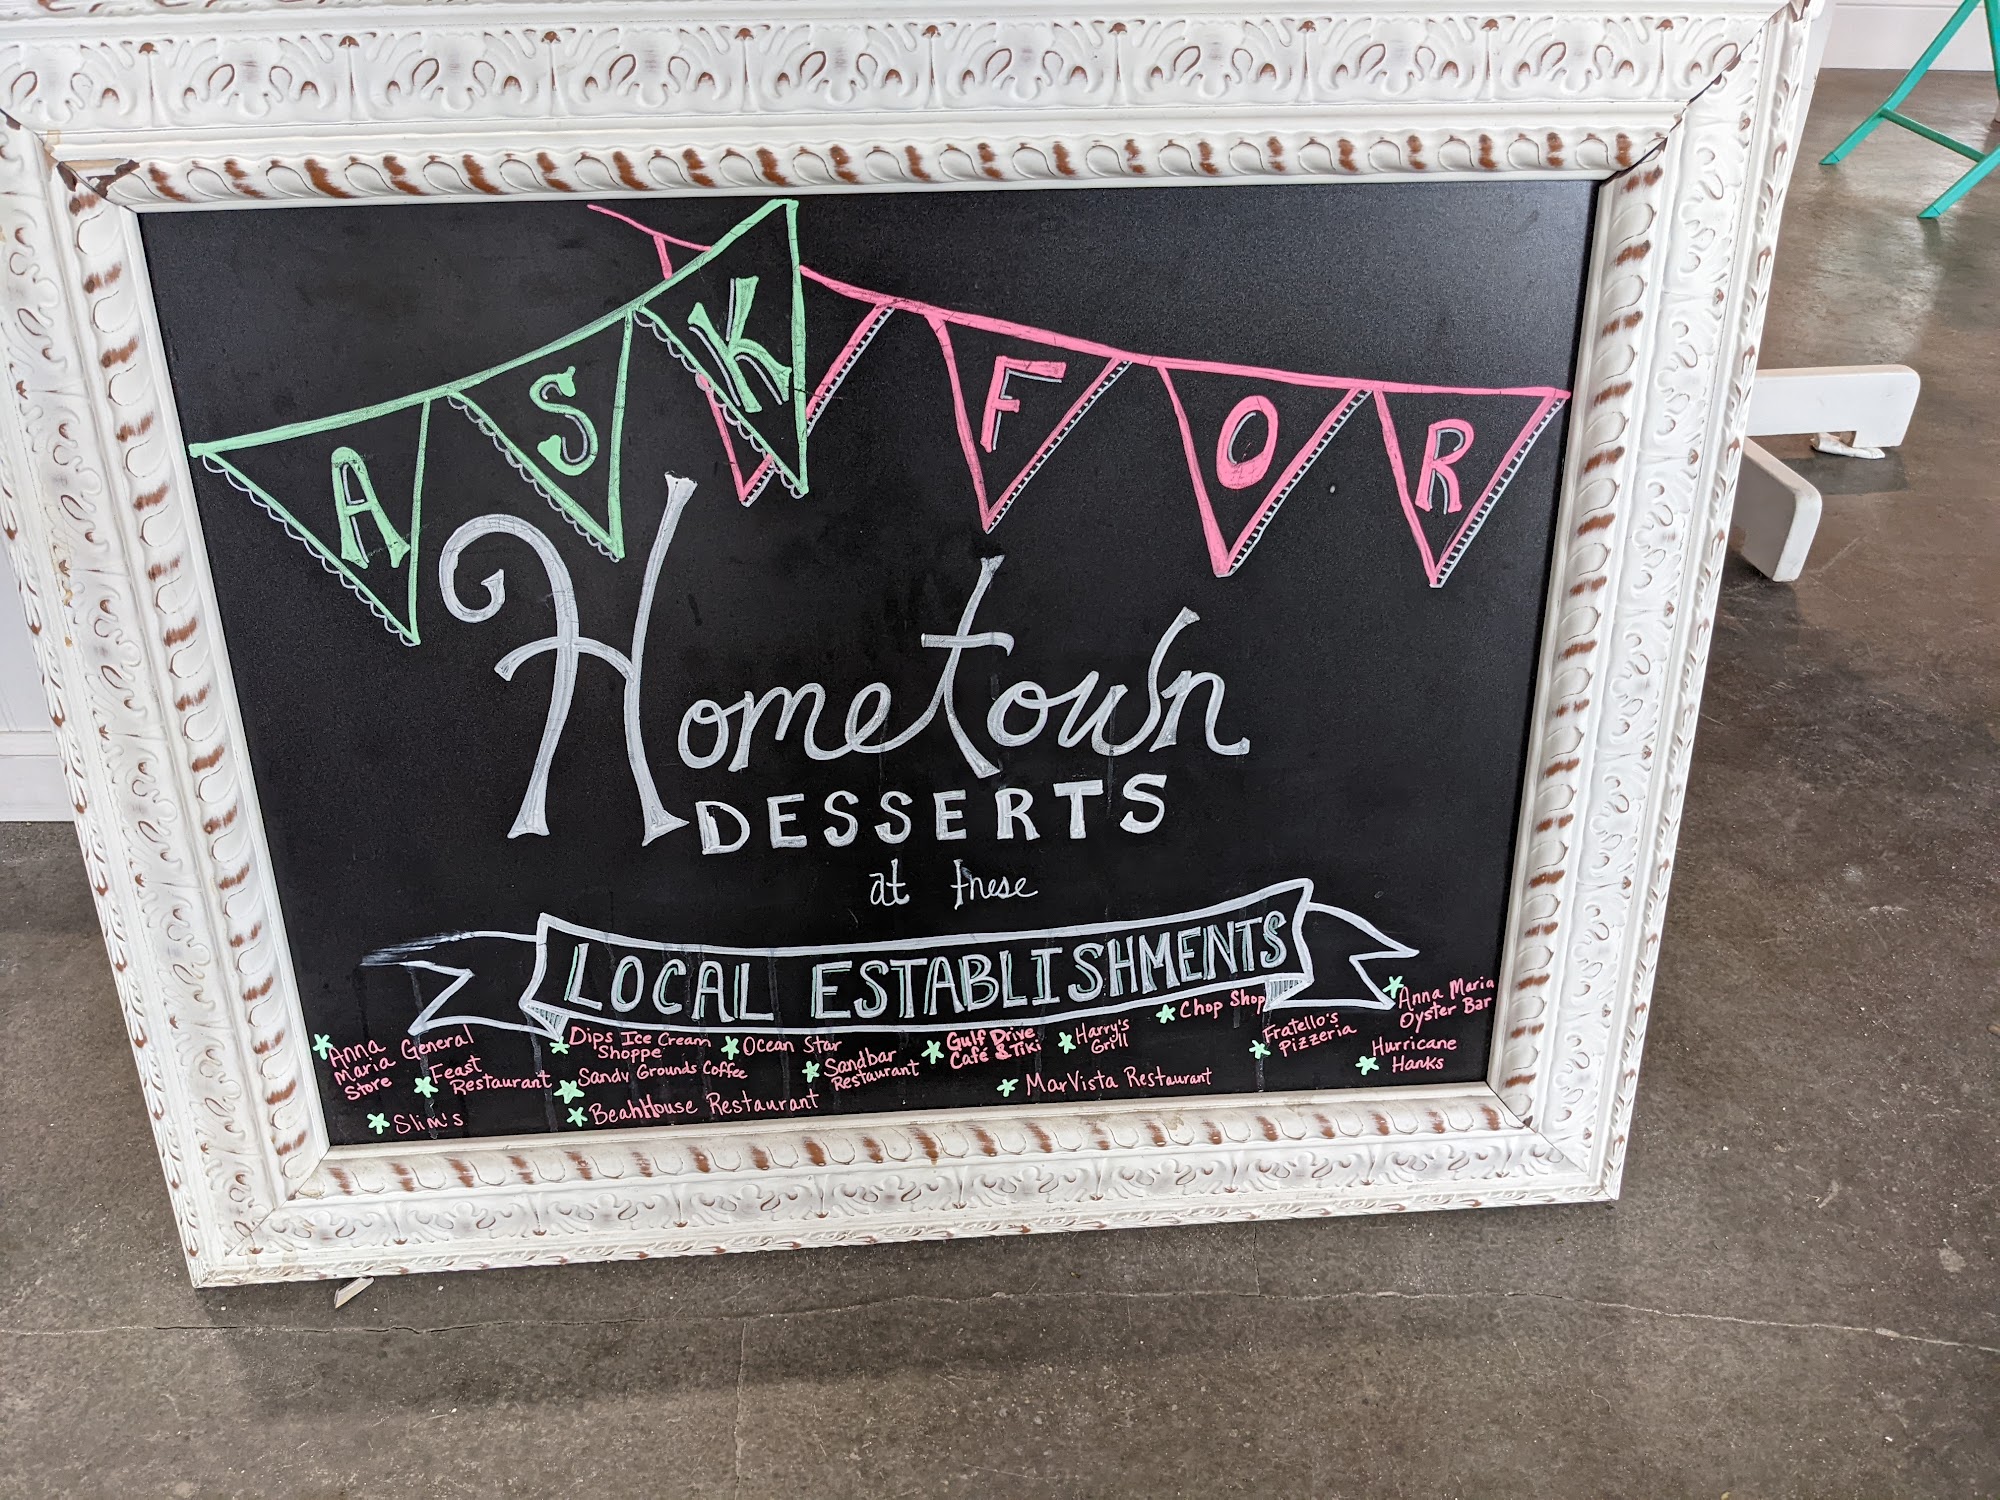 ASK FOR
Hometown
DESSERTS
at these
LOCAL ESTABLISHMENTS
Anna
Maria General
Store
Feast
Restaurant
Slim's
Dips Ice Cream
Shoppe
Sandy Grounds Coffee
BeahHouse Restaurant
Ocean Star
Sandbar
Restaurant
Gulf Drive
Café & Tiki
MarVista Restaurant
Harry's
Grill
Chop Shop
Fratello's
Pizzeria
Anna Maria
Oyster Bar
Hurricane
Hanks